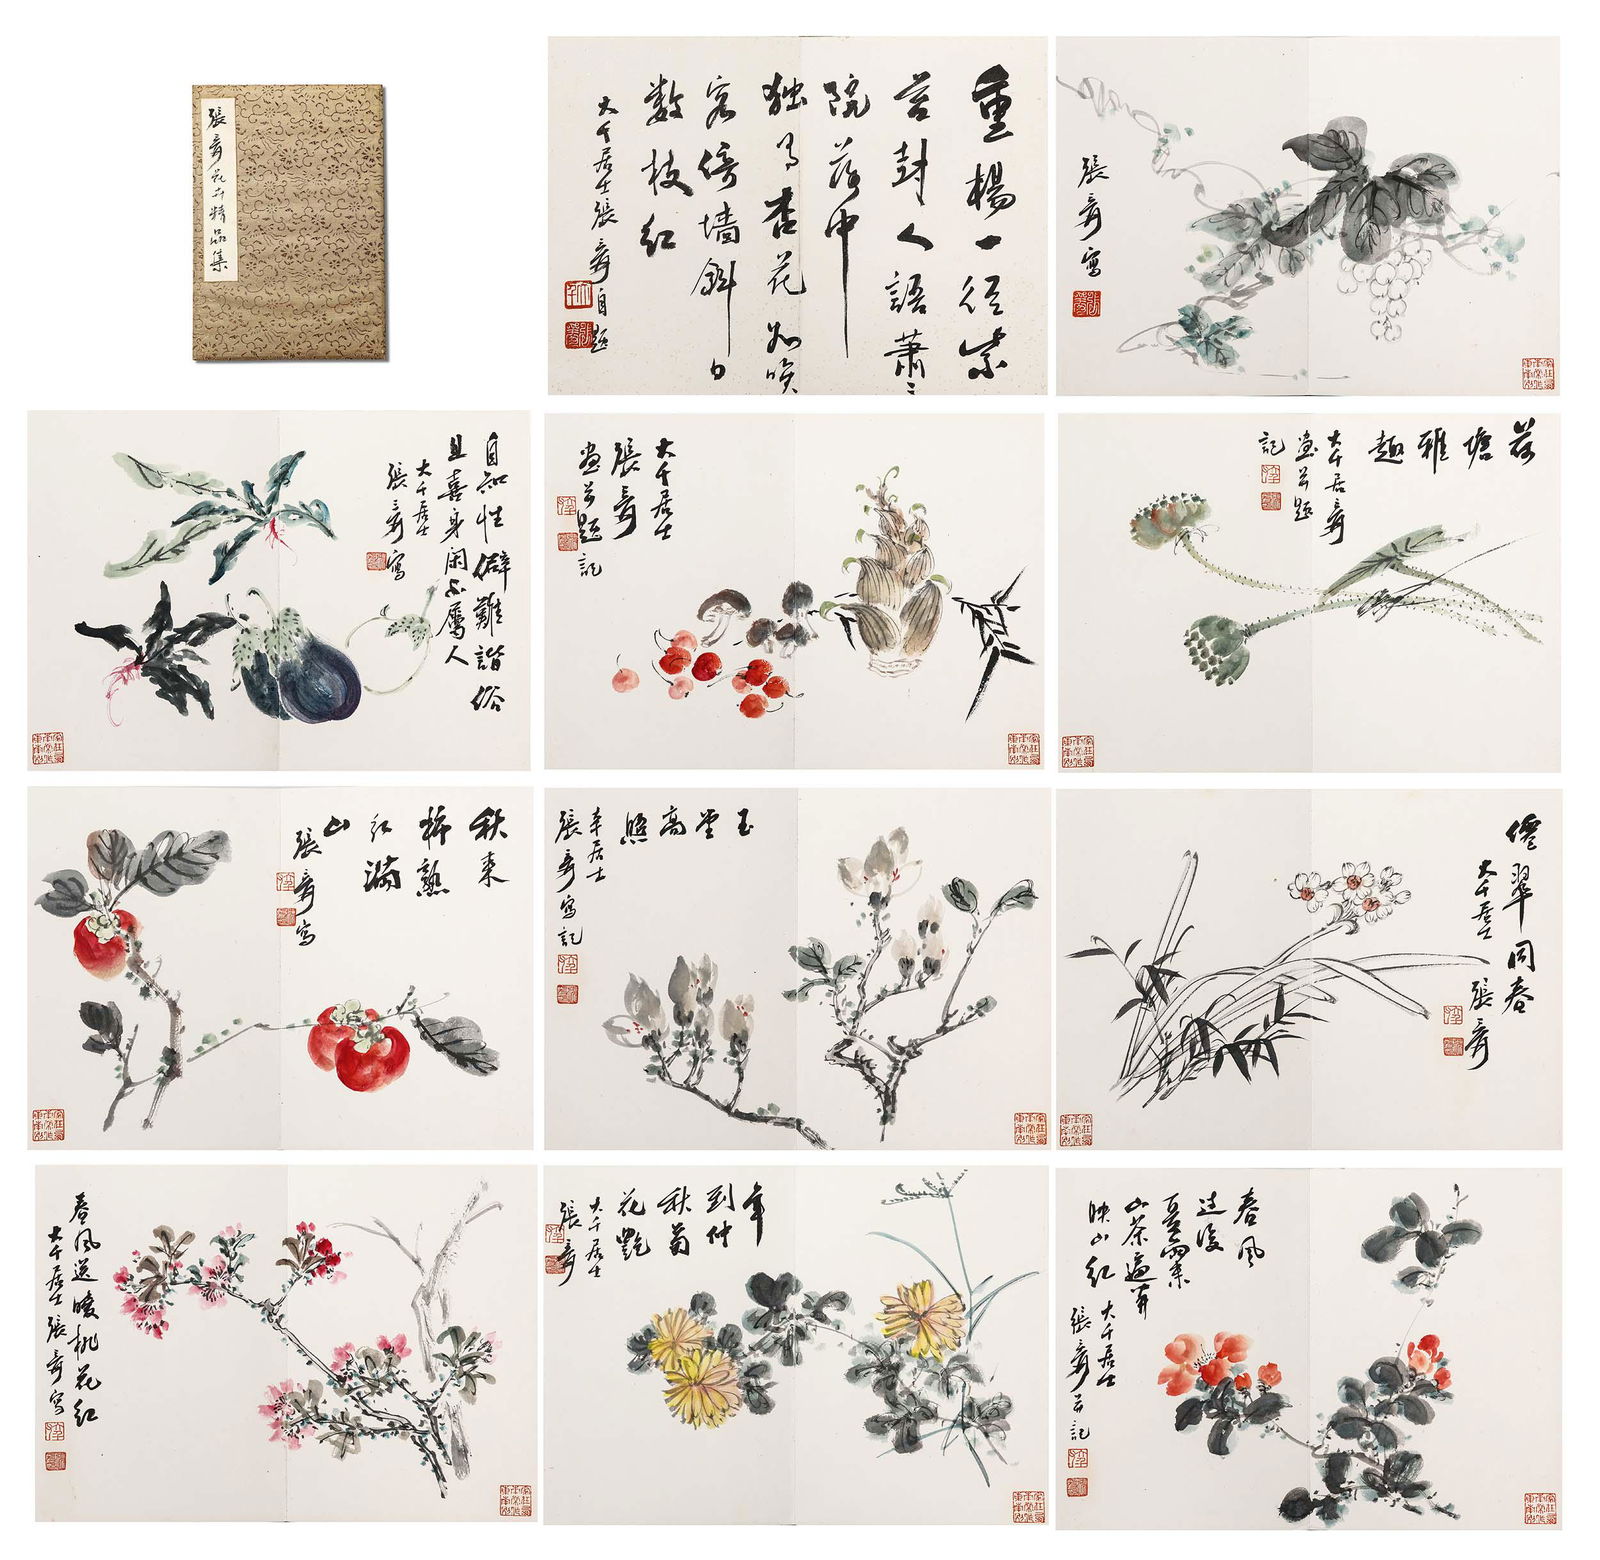 張爰花卉精品集
重楊一徑紫
苔封人語蕭〻
院落中
獨有杏花如喚
客倚墻斜日
数枝紅
大千居士張爰自題
張爰寫
自知性僻難諧俗
且喜身閑不屬人
大千居士
張爰寫
大千居士
張爰
畫并題記
荷
塘
雅
趣
大千居爰
畫并題
記
秋来
柿熟
紅滿
山
張爰寫
玉
堂
高
照
大千居士
張爰寫記
僊翠同春
大千居士
張爰
春風送暖桃花紅
大千居士張爰寫
年
到仲
秋菊
花艷
大千居士
張爰
春風
过後
夏雨来
山茶遍開
映山紅
大千居士
張爰并記